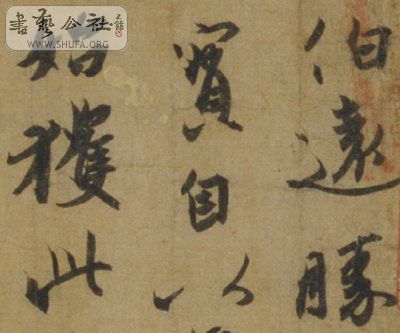 伯遠勝
寶自以
始獲此
書藝公社
WWW.SHUFA.ORG